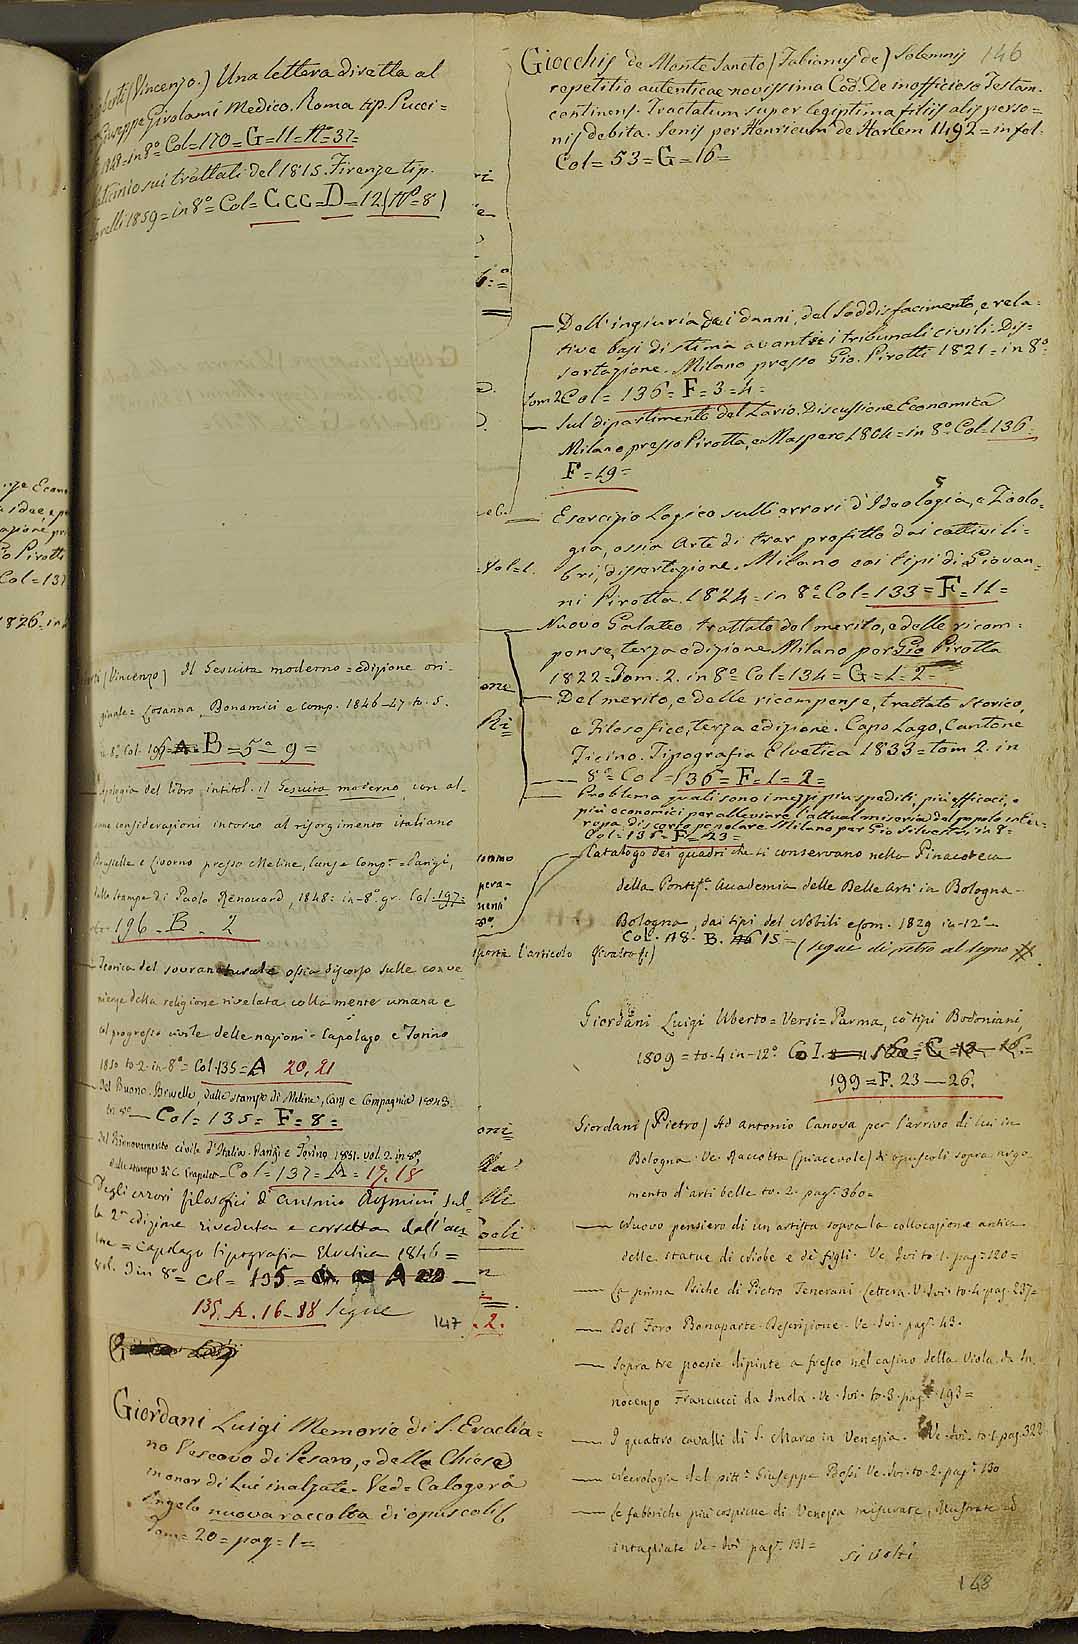 (Vincenzo.) Una lettera diretta al
Giuseppe Girolami Medico. Roma tip. Pucci=
in 8º Col=170=G=11=Nº=37=
sui trattati del 1815. Firenze tip.
1859=in 8º=Col=CCC=D=12(Nº=8)
(Vincenzo) Il Gesuita moderno=edizione ori-
ginale=Losanna, Bonamici e comp. 1846-47 to. 5.
in 8º Col. B=5=9=
Apologia del libro intitol. il Gesuita moderno, con al-
cune considerazioni intorno al risorgimento italiano
Brusselle e Livorno presso Meline, Cans e Compº=Parigi,
dalle stampe di Paolo Renouard, 1848=in-8º gr. Col=197=
196_B_2
Teorica del sovranaturale ossia discorso sulle conve
nienze della religione rivelata colla mente umana e
col progresso civile delle nazioni=Capolago e Torino
1850 to-2-in-8º=Col=135=A 20,21
Del Buono. Brusselle dalle stampe di Meline, Cans e Compagnia 1843.
in 8º_Col=135=F=8=
Del Rinnovamento civile d'Italia. Parigi e Torino 1851. vol. 2. in 8º
dalle stampe di Col=137=A=17.18
Degli errori filosofici d'Antonio Rosmini
la 2ª edizione riveduta e corretta dall'au
tore=Capolago tipografia Elvetica 1846=
vol. 3 in 8º=Col=135=
135.A.16_18 segue
147
Giordani Luigi Memorie di S. Eraclia=
no Vescovo di Pesaro, e della Chiesa
in onor di Lui inalzate. Ved=Calogerà
Angelo nuova raccolta di opuscoli
Tom=20=pag=1=
Giocchis de Monte Sancto (Fabianus de) Solemnis 146
repetitio autenticae novissima Cod. De inofficioso Testam.
continens. Tractatum super legiptima filiis aliis perso=
nis debita. Senis per Henricum de Harlem 1492=in fol.
Col=53=G=16=
Dell'ingiuria dei danni, del Soddisfacimento, e rela=
tive basi di stima avanti i tribunali civili. Dis=
sertazione. Milano presso Gio. Pirotti 1821=in 8º
tom 2 Col=136=F=3=4=
Sul dipartimento del Lario. Discussione Economica
Milano presso Pirotta, e Maspero 1804=in 8º Col=136=
F=19=
Esercizio Logico sulli errori d'Ideologia, e Zoolo=
gia, ossia Arte di trar profitto dai cattivi li=
bri, dissertazione. Milano coi tipi di Giovan=
ni Pirotta. 1824=in 8º=Col=133=F=11=
Nuovo Galateo. trattato del merito, e delle ricom=
pense, terza edizione Milano per Gio Pirotta
1822=Tom. 2. in 8º Col=134=G=1=2=
Del merito, e delle ricompense, trattato storico,
e Filosofico, terza edizione. Capo Lago, Cantone
Ticino. Tipografia Elvetica 1833=tom 2. in
8º Col=136=F=1=2=
Problema quali sono i mezzi più spediti, più efficaci, e
più economici per alleviare l'attual miseria del popolo in Eu=
ropa. discorso popolare Milano per Gio Silvestri, in 8º
Col=136=F=23=
Catalogo dei quadri che si conservano nella Pinacoteca
della Pontifª. Accademia delle Belle Arti in Bologna-
Bologna, dai tipi del Nobili e Com. 1829 in-12º-
Col. A8. B. 15-(segue di retro al segno #
porta l'articolo
Giordani Luigi Uberto=Versi=Parma, co' tipi Bodoniani
1809=to-4 in-12º
199=F. 23_26.
Giordani (Pietro) Ad Antonio Canova per l'arrivo di lui in
Bologna. Ve. Raccolta (piacevole) di opuscoli sopra argo
mento d'arti belle to. 2. pag. 360=
_Nuovo pensiero di un artista sopra la collocazione antica
delle statue di Niobe e de' figli. Ve. Ivi to. 1. pag. 120=
_La prima Psiche di Pietro Tenerani. Lettera. V. Ivi. to. 4. pag. 237=
_Del Foro Bonaparte. Descrizione. Ve. Ivi. pag. 43.
_Sopra tre poesie dipinte a fresco nel casino della Viola da In
nocenzo Francucci da Imola. Ve. Ivi. to. 3. pag. 193=
_I quattro cavalli di S. Marco in Venezia. Ve. Ivi. to. 1. pag. 322
_Necrologia del pittº Giuseppe Bossi Ve. Ivi. to. 2. pag. 130
_Le fabbriche più cospicue di Venezia misurate, illustrate ed
intagliate Ve. Ivi pag. 131=
si volti
148